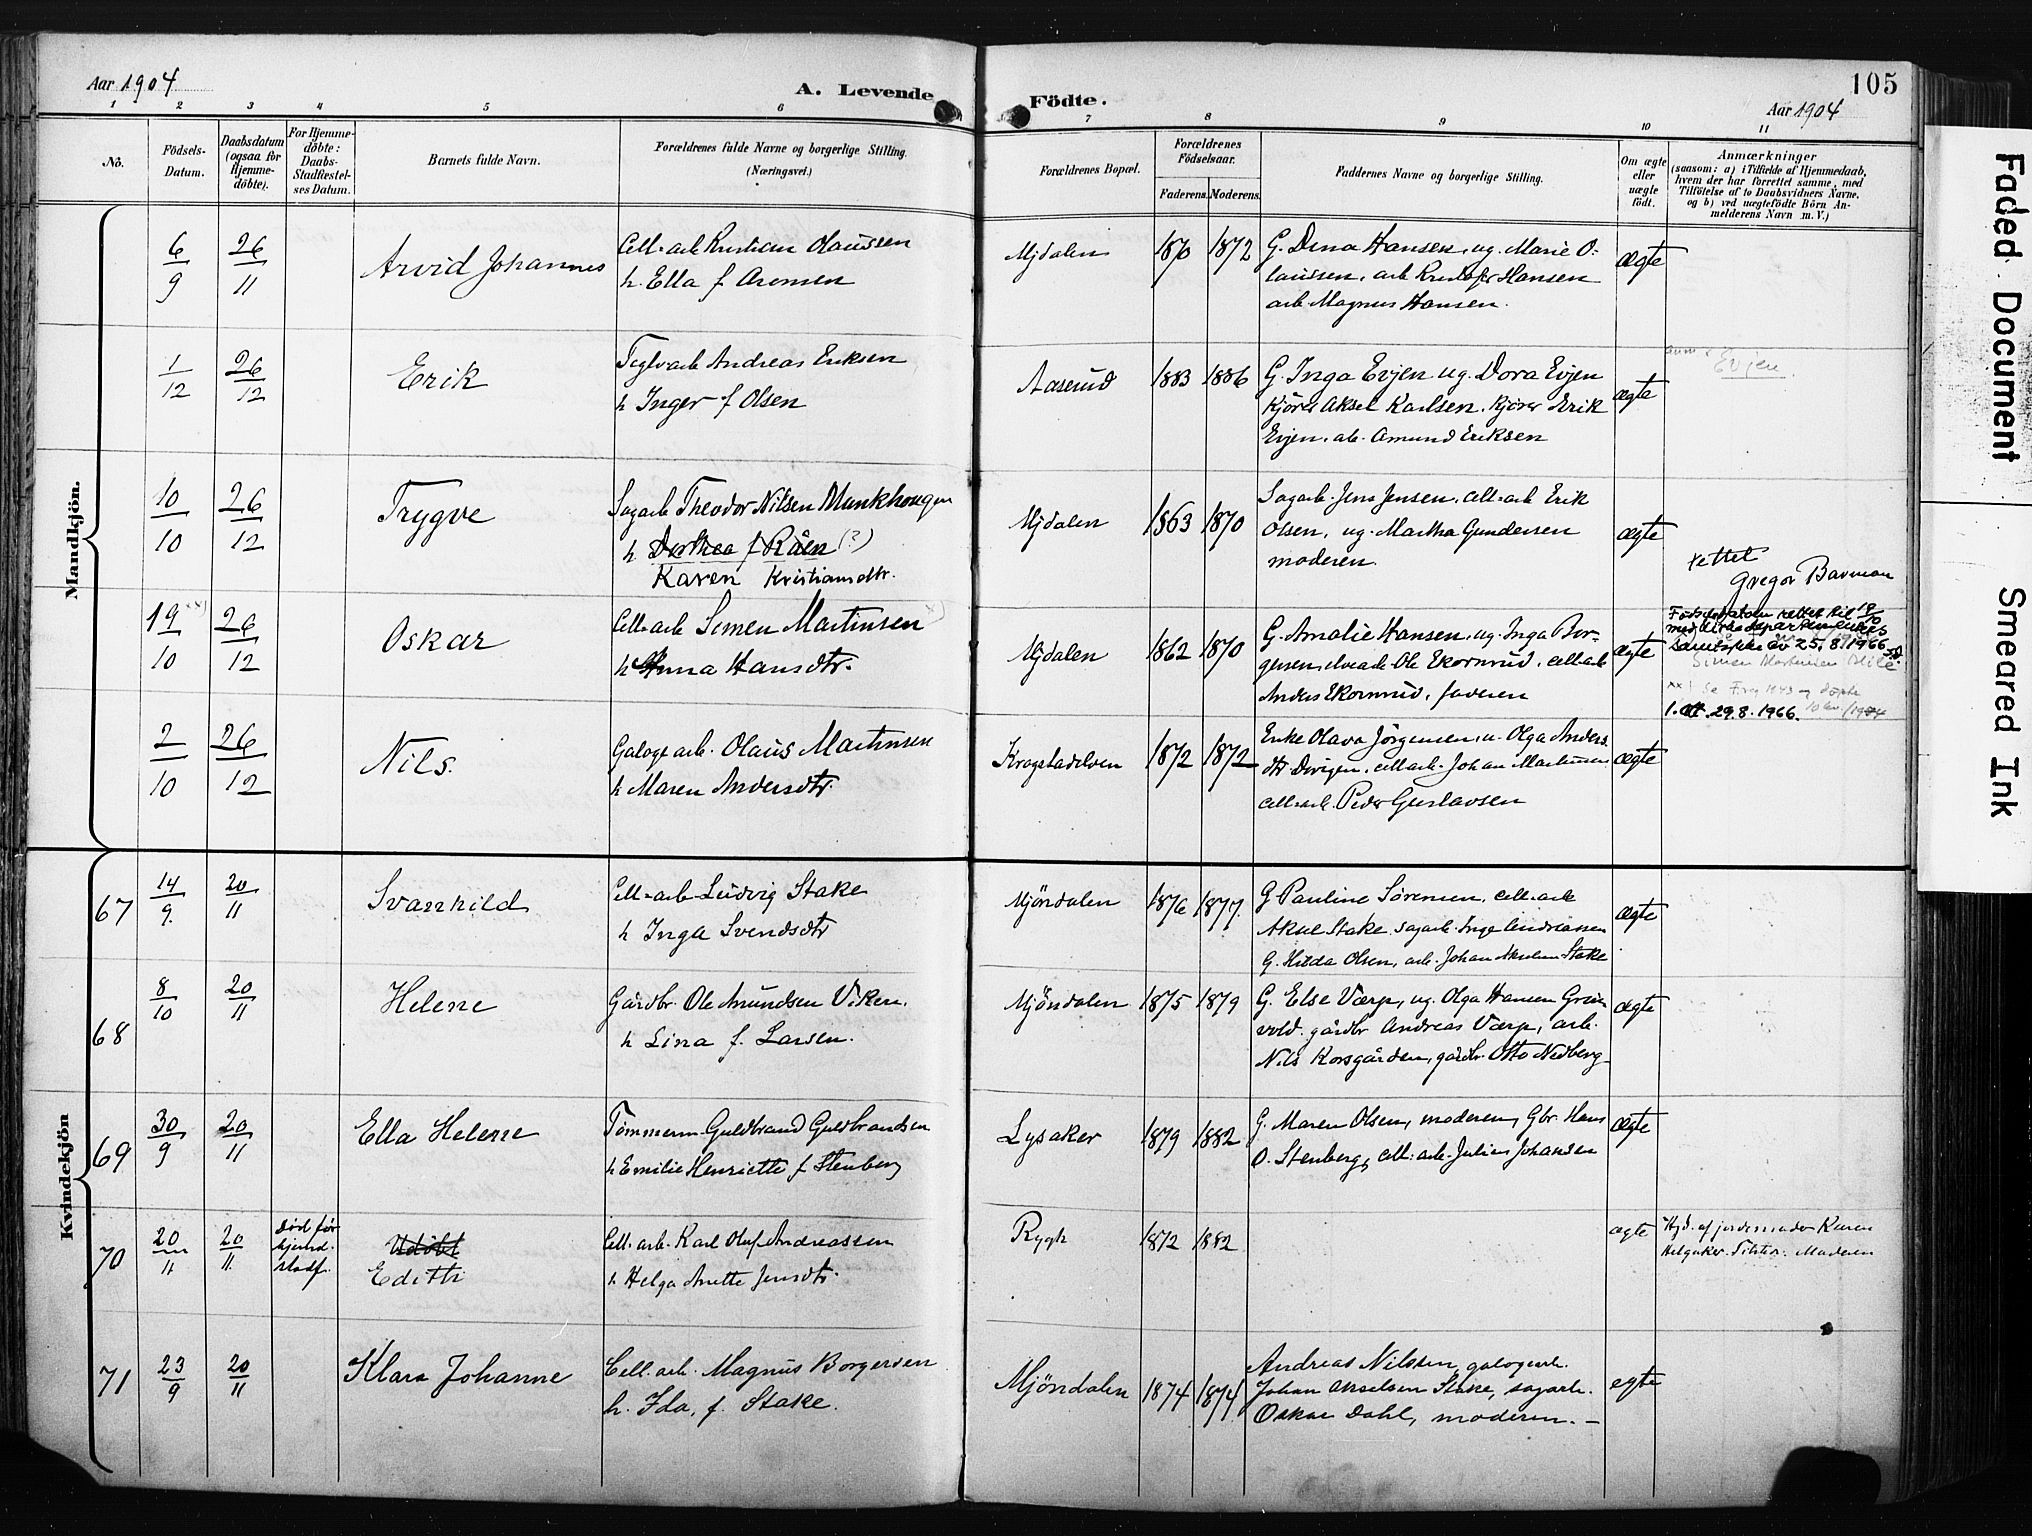 Aar 1904
A. Levende Födte.
105
Aar 1904
1 2 3 4 5 6 7 8 9 10 11
No.
Födsels-Datum.
Daabsdatum (ogsaa for Hjemme-döbte).
For Hjemme-döbte: Daabs-Stadfestel-ses Datum.
Barnets fulde Navn.
Forældrenes fulde Navne og borgerlige Stilling. (Næringsvei.)
Forældrenes Bopæl.
Forældrenes Födselsaar.
Faderens. Moderens.
Faddernes Navne og borgerlige Stilling.
Om ægte eller uægte födt.
Anmærkninger
(saasom: a) i Tilfælde af Hjemmedaab,
hvem der har forrettet samme, med
Tilföielse af to Daabsvidners Navne,
og b) ved uægtefödte Börn An-
melderens Navn m. V.)
Mandkjön.
6/9 26/11 Arvid Johannes
Cell-arb Kristian Olaussen
h. Ella f Aronsen
Mjdalen 1870 1872
G. Dina Hansen, ug. Marie O-
laussen, arb Kristofer Hansen
arb Magnus Hansen.
ægte
1/12 26/12 Erik
Teglvarb Andreas Eriksen
h Inger f Olsen
Aaserud 1883 1886
G. Inga Evjen ug. Dora Evjen
Kjörer Aksel Karlsen. Kjörer Erik
Evjen. arb. Amund Eriksen
ægte
Evjen
10/10 26/12 Trygve
Sagarb Theodor Nilsen Munkhougen
h Dorthea f Råen (?)
Karen Kristiansdtr.
Mjdalen 1863 1870
Sagarb. Jens Jensen, cell-arb Erik
Olsen, ug. Martha Gundersen
moderen
ægte
rettet
Gregor Barman
19/10 26/12 Oskar
Cell-arb Simen Martinsen
h Anna Hansdtr.
Mjdalen 1862 1870
G. Amalie Hansen, ug. Inga Bor-
gersen, elvearb Ole Ekornrud, cell-arb
Anders Ekornrud, faderen
ægte
Födselsdatoen rettet til 19/10
med kirkedepartementets
samtykke av 25.8.1966
xx) Se
1. 29.8.1966.
2/10 26/12 Nils.
Galoge arb. Olaus Martinsen
h Maren Andersdtr.
Krogstadelven 1872 1872
Enke Olava Jörgensen, u. Olga Anders
dtr cell-arb. Johan Martinsen
cell-arb. Peder Gustavsen
ægte
Kvindekjön
67 14/9. 20/11 Svanhild
Cell-arb Ludvig Stake
h Inga Svendsdtr
Mjöndalen 1876 1877.
G Pauline Sörensen, cell-arb
Aksel Stake, sagarb. Inge Andreassen
G. Hilda Olsen, arb. Johan Akselsen Stake
ægte
68 8/10 20/11 Helene
Gårdbr. Ole Amundsen Viken.
h Lina f. Larsen.
Mjöndalen 1875 1879
G. Else Værp, ug. Olga Hansen Grön-
vold. gårdbr Andreas Værp, arb.
Nils Korsgården, gårdbr. Otto Nedberg
ægte
69 30/9 20/11 Ella Helene
Tömmerm. Guldbrand Guldbrandsen
h Emilie Henriette f Stenberg
Lysaker 1879 1882
G. Maren Olsen, moderen, Gbr. Hans
O. Stenberg, cell-arb. Julius Johansen
ægte
70 20/11 20/11. Död för hjemd. stadf.
Udöbt
Edith
Cell. arb. Karl Oluf Andreassen
h Helga Anette Jensdtr
Rygh 1872 1882
ægte
Hjd. af jordemoder Karen
Helgaker. Moderen
71 23/9 20/11 Klara Johanne
Cell. arb. Magnus Borgersen
h. Ida, f. Stake.
Mjöndalen 1874 1874
Andreas Nilsen, galogearb.
Johan Akselsen Stake, sagarb.
Oskar Dahl, moderen. —
egte
Faded Document
Smeared Ink